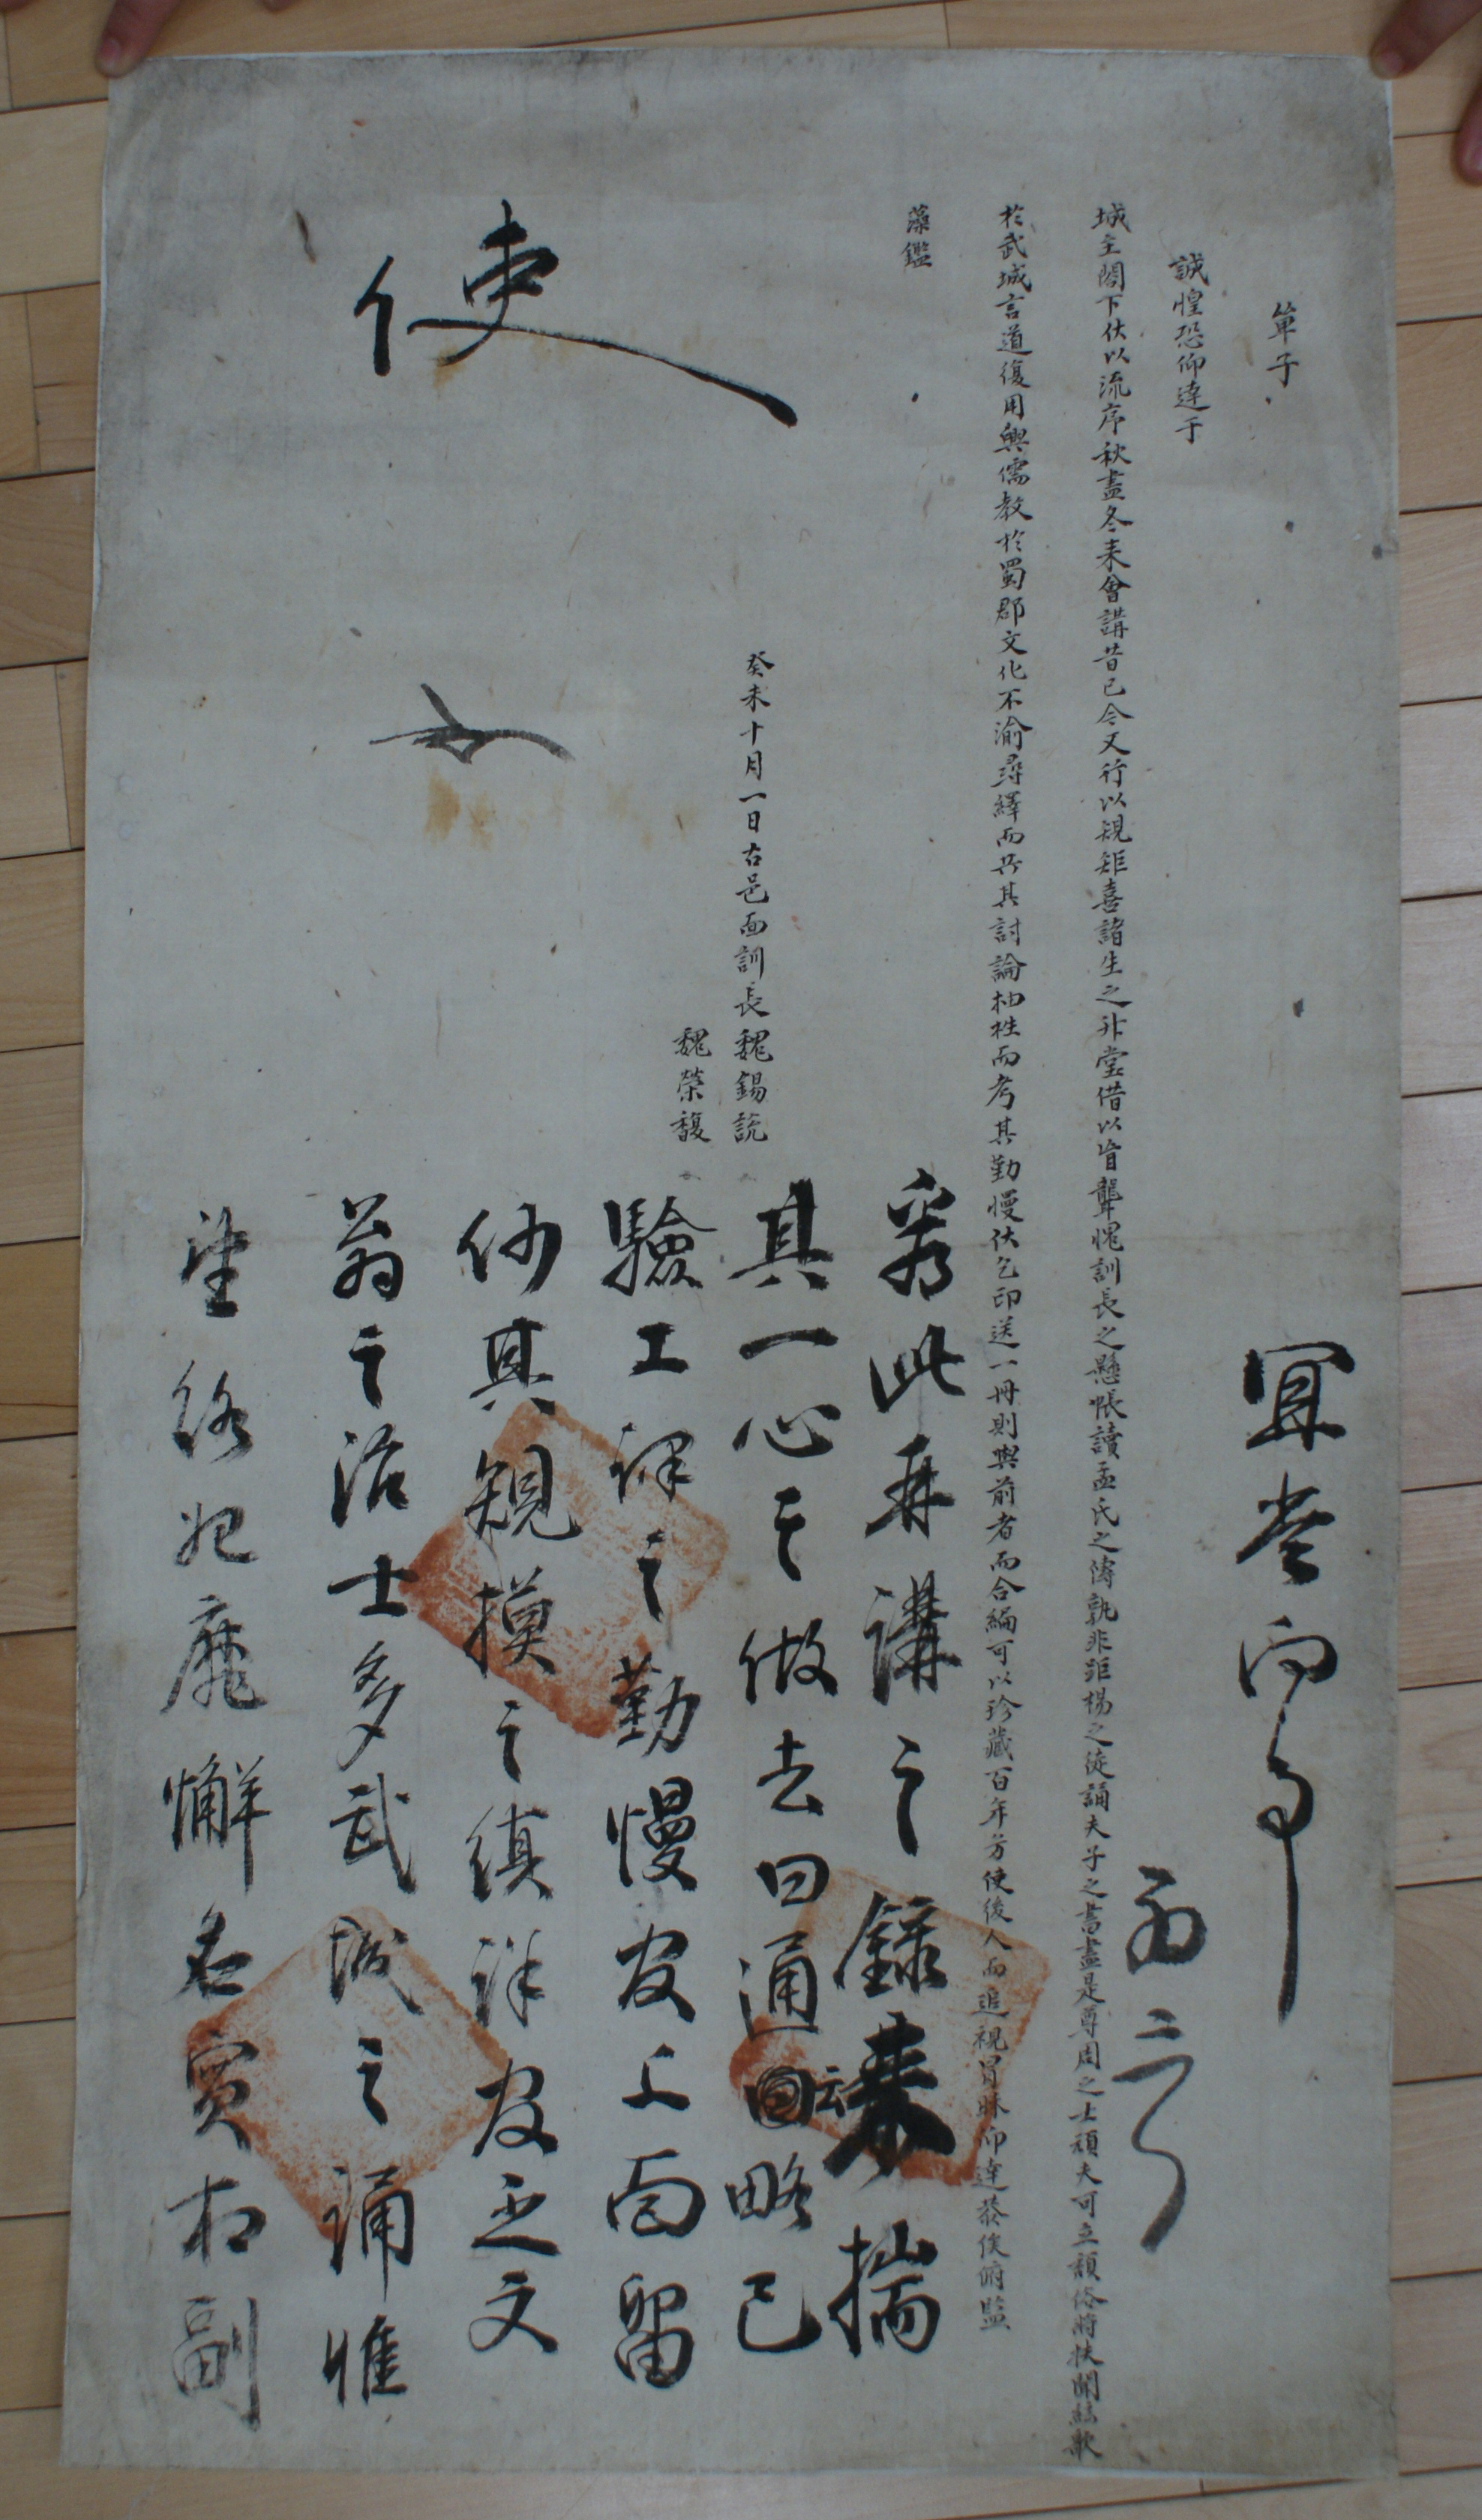 單子
誠惶恐仰達于
城主閤下伏以流序秋盡冬來會講昔已今又行以規矩喜諸生之升堂借以盲聾愧訓長之懸帳讀孟氏之傳孰非距楊之徒誦夫子之書盡是尊周之士頑夫可立頹俗將扶聞絃歌
於武城言道復用興儒教於蜀郡文化不渝尋繹而共其討論抽栍而考其勤慢伏乞印送一冊則與前者而合編可以珍藏百年方使後人而追視冒昧仰達恭俟俯監
藻鑑
癸未十月一日古邑面訓長魏錫說
魏榮馥
使
此再講之錄來揣
其一心之做去曰通曰略已
驗工課之勤慢及上面留
其規模之縝詳及之文
翁之治士多武城之誦惟
望終始靡懈名實相副